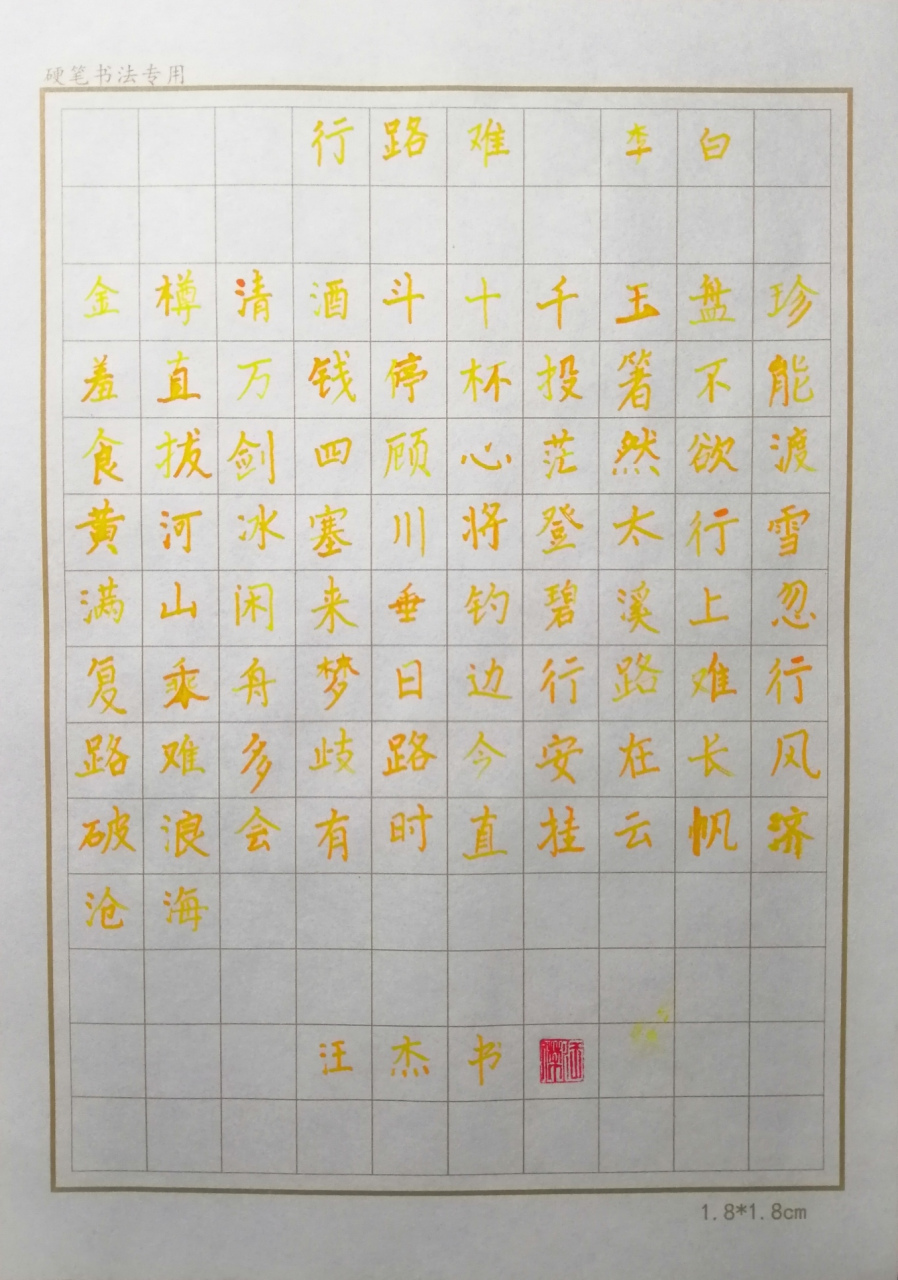 硬笔书法专用
行路难 李白
金樽清酒斗十千玉盘珍
羞直万钱停杯投箸不能
食拔剑四顾心茫然欲渡
黄河冰塞川将登太行雪
满山闲来垂钓碧溪上忽
复乘舟梦日边行路难行
路难多歧路今安在长风
破浪会有时直挂云帆济
沧海
汪杰书
1.8*1.8cm